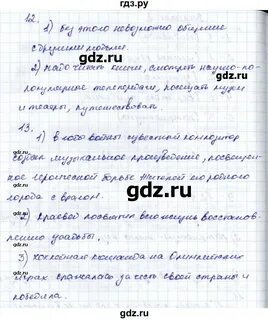 12.
1) без этого невозможно общение
с другими людьми.
2) надо читать книги, смотреть научно-по-
пулярные телепередачи, посещать музеи
и театры, путешествовать.
gdz.ru
13.
1) В годы войны известный композитор
создал музыкальное произведение, посвящен-
ное героической борьбе жителей его родного
города с врагом.
gdz.ru
2) Краевед посвятил всю жизнь восстанов-
лению усадьбы.
3) хоккейная команда на Олимпийских
играх сражалась за честь своей страны и
победила.
gdz.ru